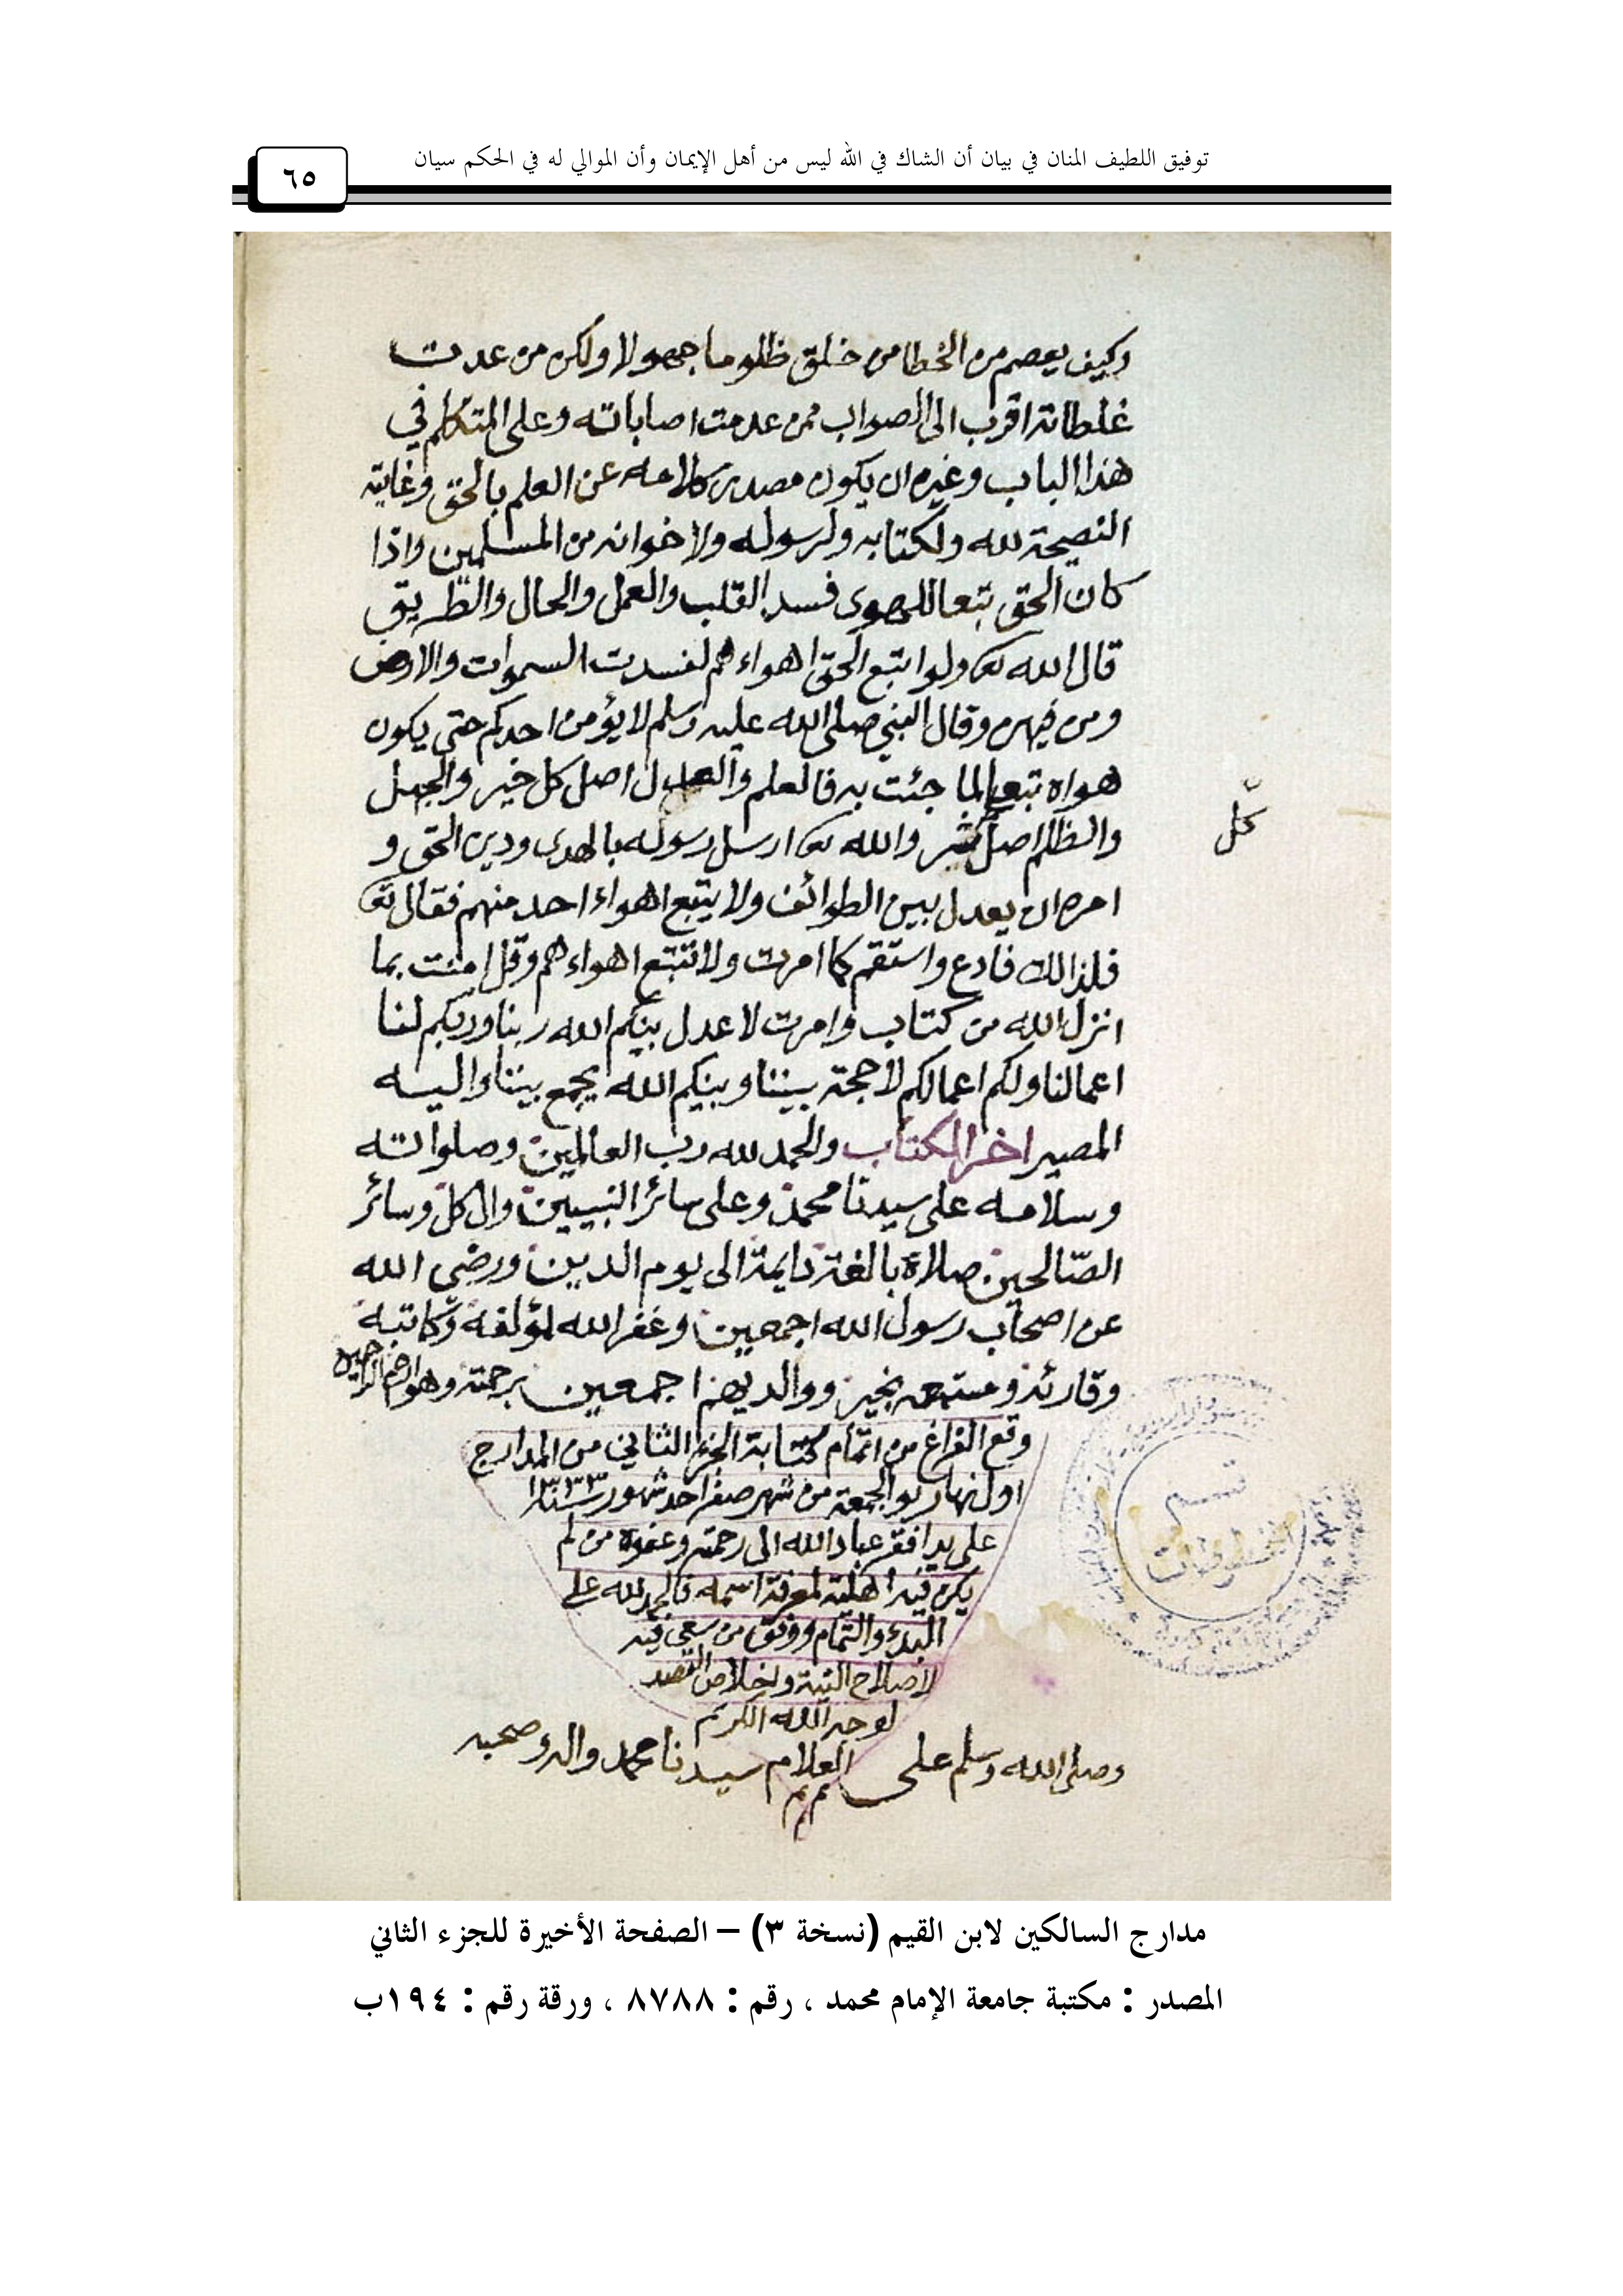 توفيق اللطيف المنان في بيان أن الشاك في الله ليس من أهل الإيمان وأن الموالي له في الحكم سيان
٦٥
وكيف يعصم من الخطا من خلق ظلوما جهولا ولكن من عدت
غلطاته اقرب الى الصواب ممن عدمت اصاباته وعلى المتكلم في
هذا الباب وغيره ان يكون مصدر كلامه عن العلم بالحق وغايته
النصيحة لله ولكتابه ولرسوله ولاخوانه من المسلمين واذا
كان الحق تبعا للهوى فسد القلب والعمل والحال والطريق
قال الله تعا ولو اتبع الحق اهواءهم لفسدت السموات والارض
ومن فيهن وقال النبي صلى الله عليه وسلم لا يؤمن احدكم حتى يكون
هواه تبعا لما جئت به فالعلم والعدل اصل كل خير والجهل
والظلم اصل شر والله تعا ارسل رسوله بالهدى ودين الحق و
كل
امره ان يعدل بين الطوائف ولا يتبع اهواء احد منهم فقال تعا
فلذالك فادع واستقم كما امرت ولا تتبع اهواءهم وقل امنت بما
انزل الله من كتاب وامرت لاعدل بينكم الله ربنا وربكم لنا
اعمالنا ولكم اعمالكم لا حجة بيننا وبينكم الله يجمع بيننا واليه
المصير اخر الكتاب والحمد لله رب العالمين وصلواته
وسلامه على سيدنا محمد وعلى سائر النبيين وال كل وسائر
الصّالحين صلاة بالغة دايمة الى يوم الدين ورضي الله
عن اصحاب رسول الله اجمعين وغفر الله لمؤلفه وكاتبه
وقارئه ومستمعه بخير ووالديهم اجمعين برحمته وهو ارحم الراحمين
وقع الفراغ من اتمام كتابة الجزء الثاني من المدارج
اول نهار يوالجمعة من شهر صفر احد شهور سنة ١٣٣٣
على يد افقر عباد الله الى رحمته وعفوه من لم
يكن فيه اهلية لمعرفة اسمه فالحمد لله على
البدء والتمام ووفق من سعى فيه
لاصلاح النية واخلاص القصد
لوجه الله الكريم
وصلى الله وسلم على العلام سيدنا محمد واله وصحبه
م م م
قسم
المخطوطات
مدارج السالكين لابن القيم (نسخة ٣) – الصفحة الأخيرة للجزء الثاني
المصدر : مكتبة جامعة الإمام محمد ، رقم : ٨٧٨٨ ، ورقة رقم : ١٩٤ب